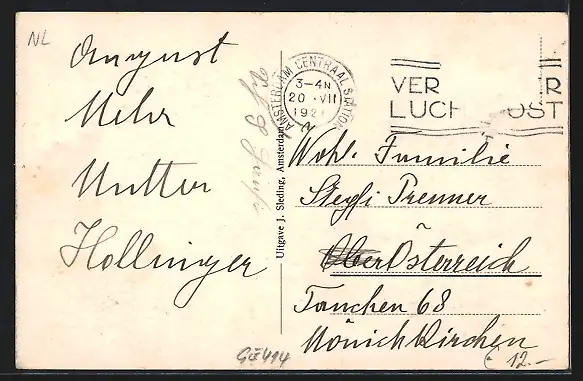 NL
August
Mehr
Mutter
Hollinger
Uitgave J. Sleding, Amsterdam
AMSTERDAM CENTRAAL STATION
3-4N
20 VII
192
VER R
LUCH OST
Wohl. Familie
Steffi Prenner
Ober Österreich
Tauchen 68
Mönichkirchen
GZ414
€ 12.-